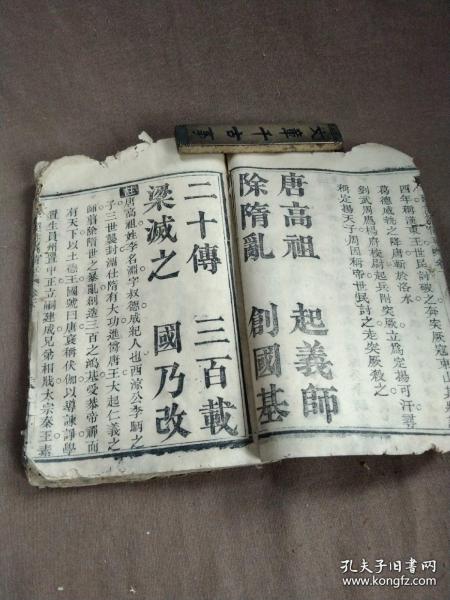 文章千古事
四年稱漢東王世民討破之奔突厥寇東山
葛德威執之降唐斬於洛水
劉武周馬邑校尉起兵附突厥立爲定楊可汗
稱定揚天子周因稱帝世民討之走突厥殺之
唐高祖 起義師
除隋亂 創國基
二十傳 三百載
梁滅之 國乃改
唐高祖姓李名淵字叔德成紀人也西涼公李暠之
子三世襲封淵仕隋有大功進爵唐王大起仁義之
師翦除隋世之暴亂創造三百之鴻基受恭帝禪而
有天下以土德王國號曰唐袞稱伏伽以導諫諍學
置生員州置中正立嗣建成兄弟相戕太宗秦王素
孔夫子旧书网
www.kongfz.com